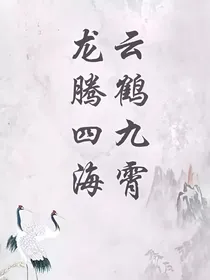 云鹤九霄
龙腾四海